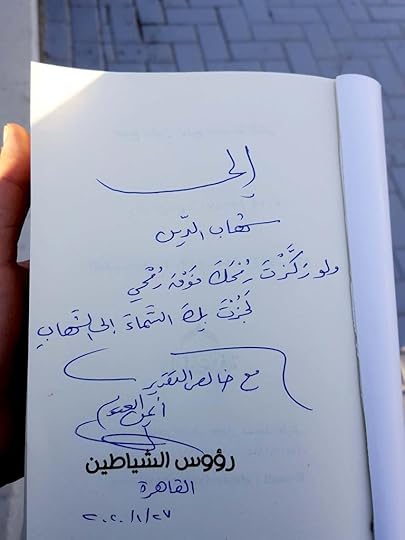 إلى
شهاب الدين
ولو ركَّزْتَ رُمْحَكَ فَوْقَ رُمْحِي
لَجُزْتَ بِكَ السَّمَاءَ إلى الشهابِ
مع خالص التقدير
أيمن العتوم
رؤوس الشياطين
القاهرة
٢٠٢٠/١/٢٧